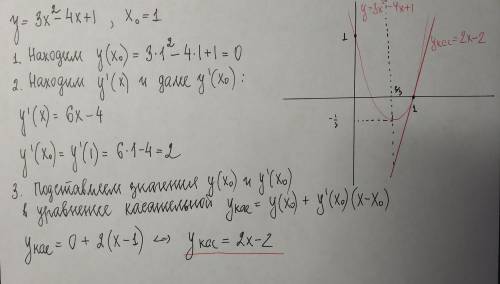 y = 3x² - 4x + 1 , x₀ = 1
1. Находим y(x₀) = 3·1² - 4·1 + 1 = 0
2. Находим y'(x) и далее y'(x₀) :
y'(x) = 6x - 4
y'(x₀) = y'(1) = 6·1 - 4 = 2
3. Подставляем значения y(x₀) и y'(x₀)
в уравнение касательной yкас = y(x₀) + y'(x₀)(x - x₀)
yкас = 0 + 2(x - 1) ⇔ yкас = 2x - 2
y = 3x² - 4x + 1
yкас = 2x - 2
1
2/3
1
-1/3